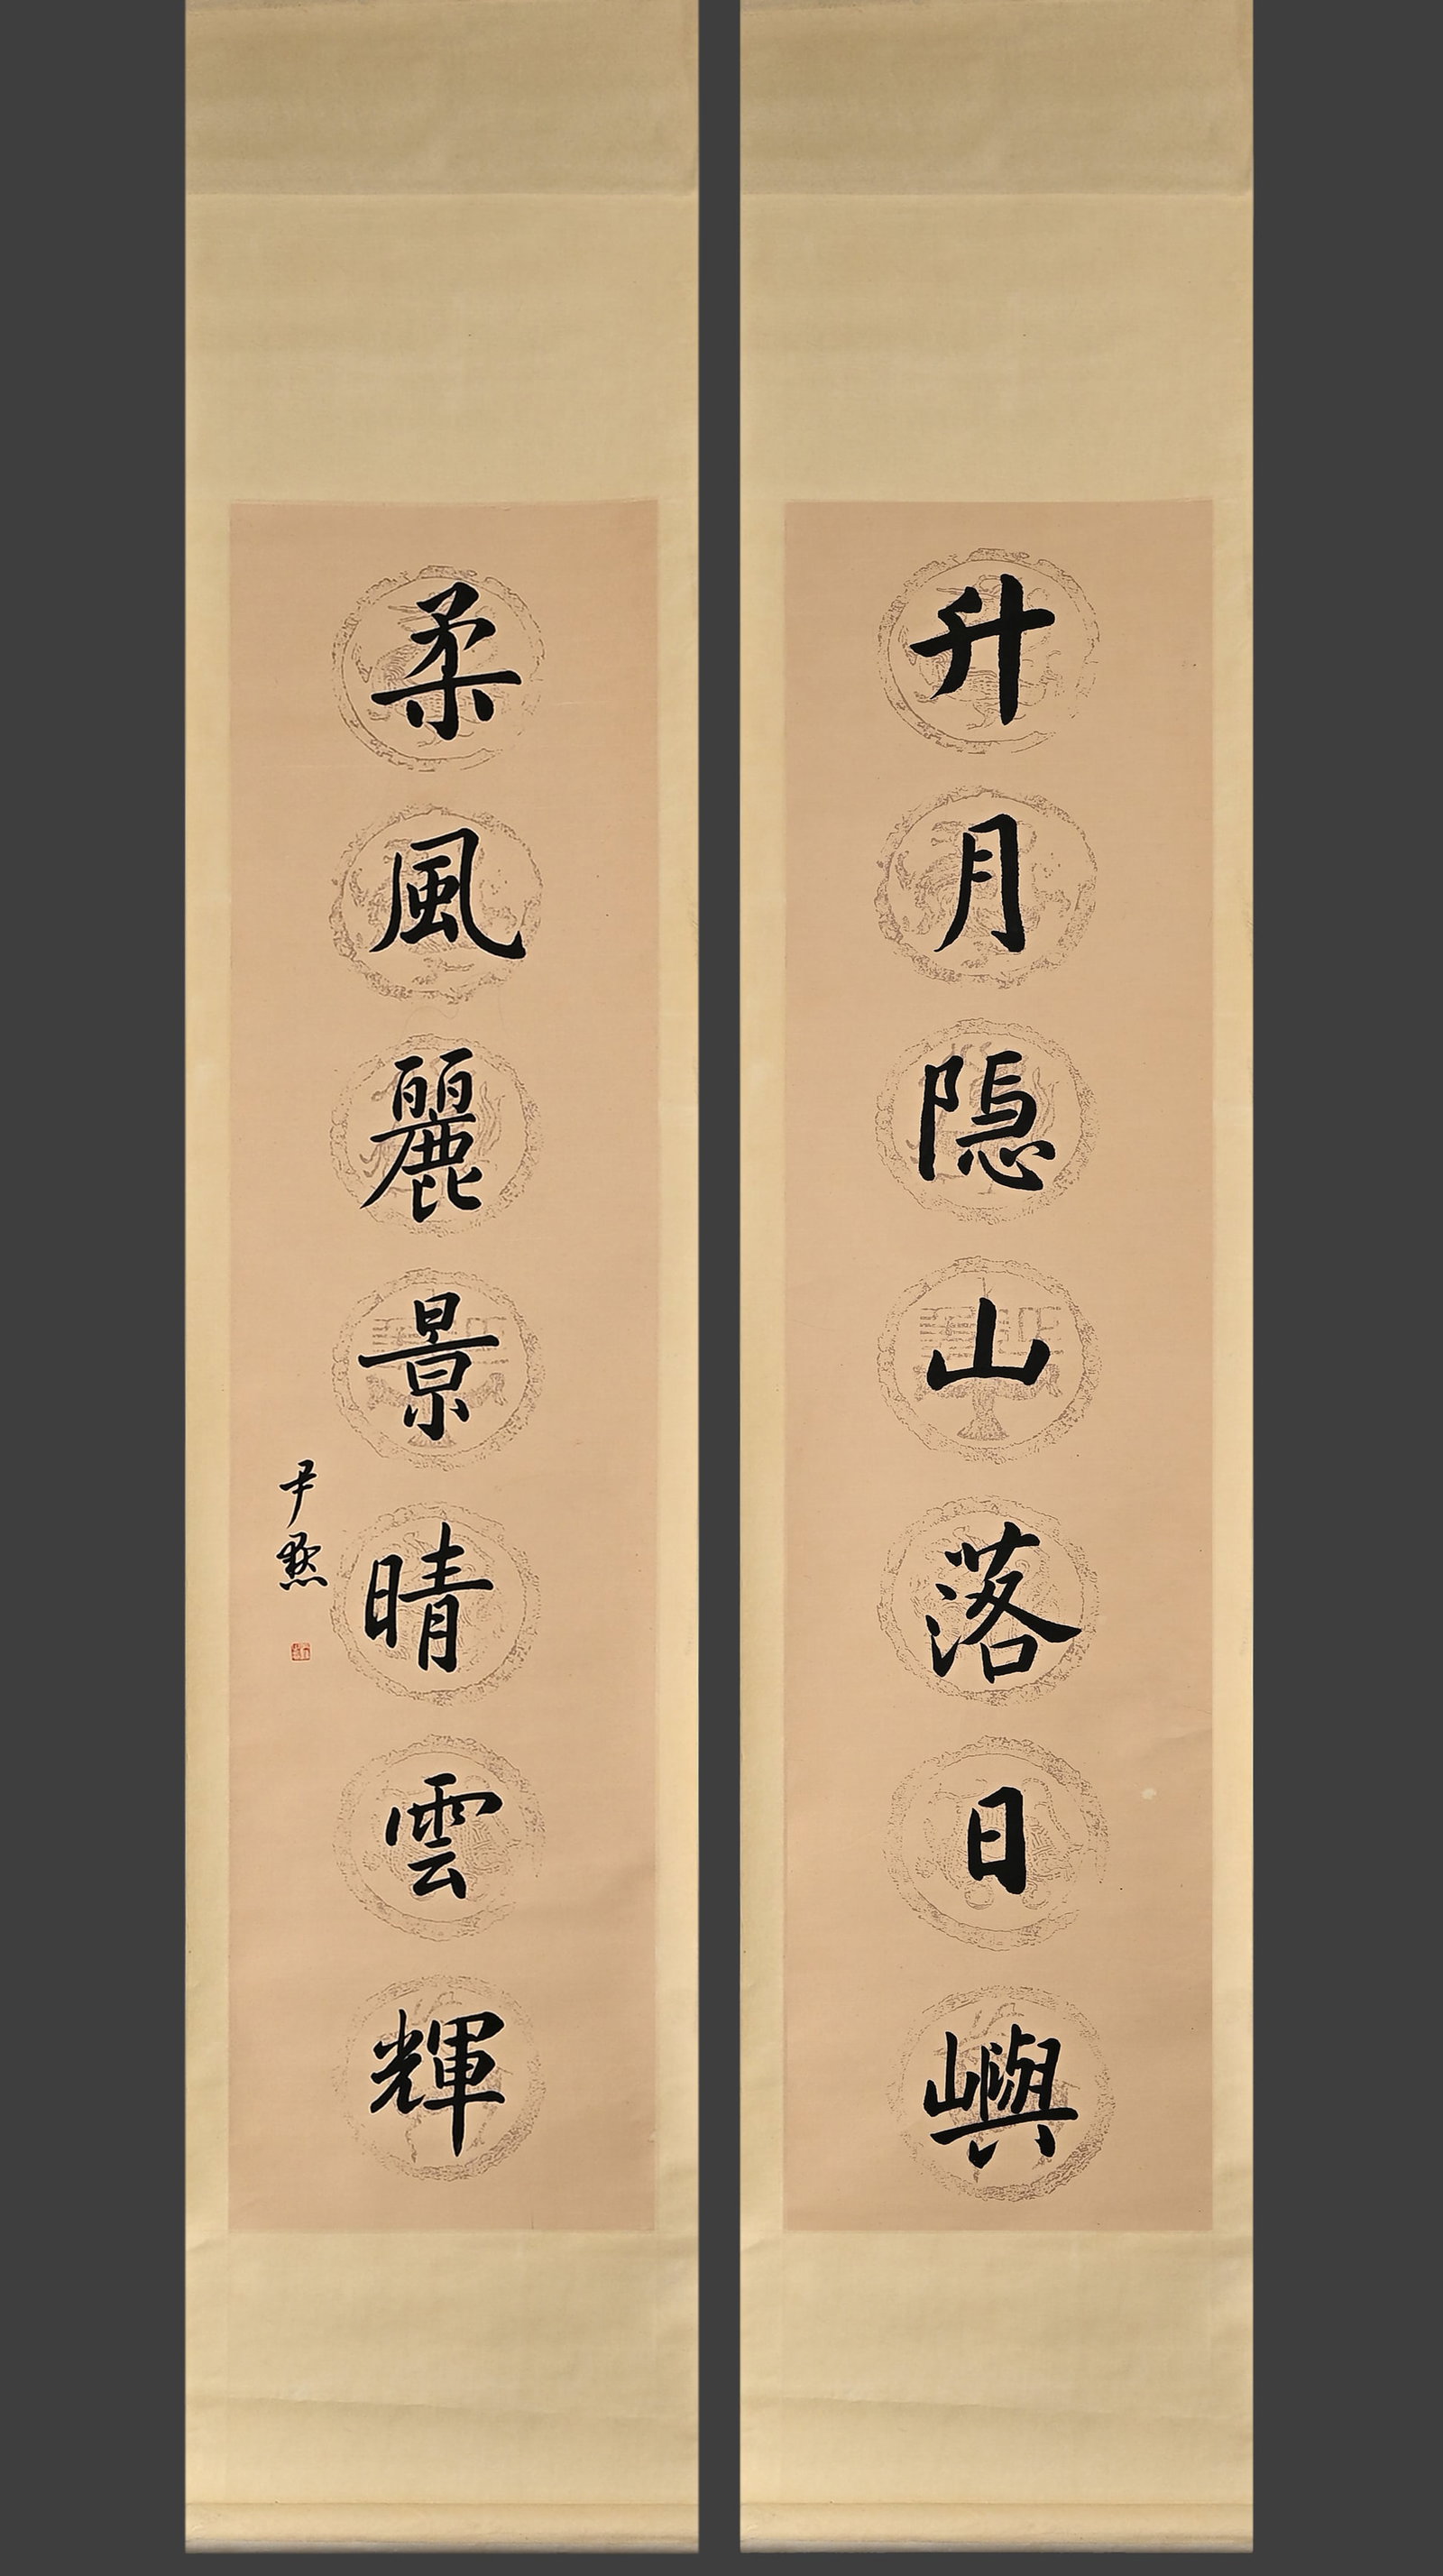 升月隐山落日嶼
柔風麗景晴雲輝
尹默